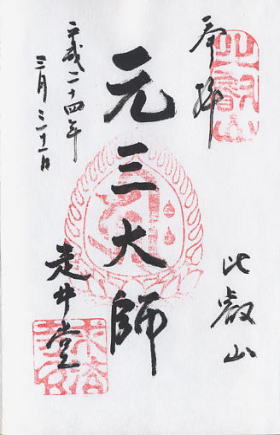 奉拝
比叡山
比叡山
元三大師
走井堂
平成二十四年
三月三十一日